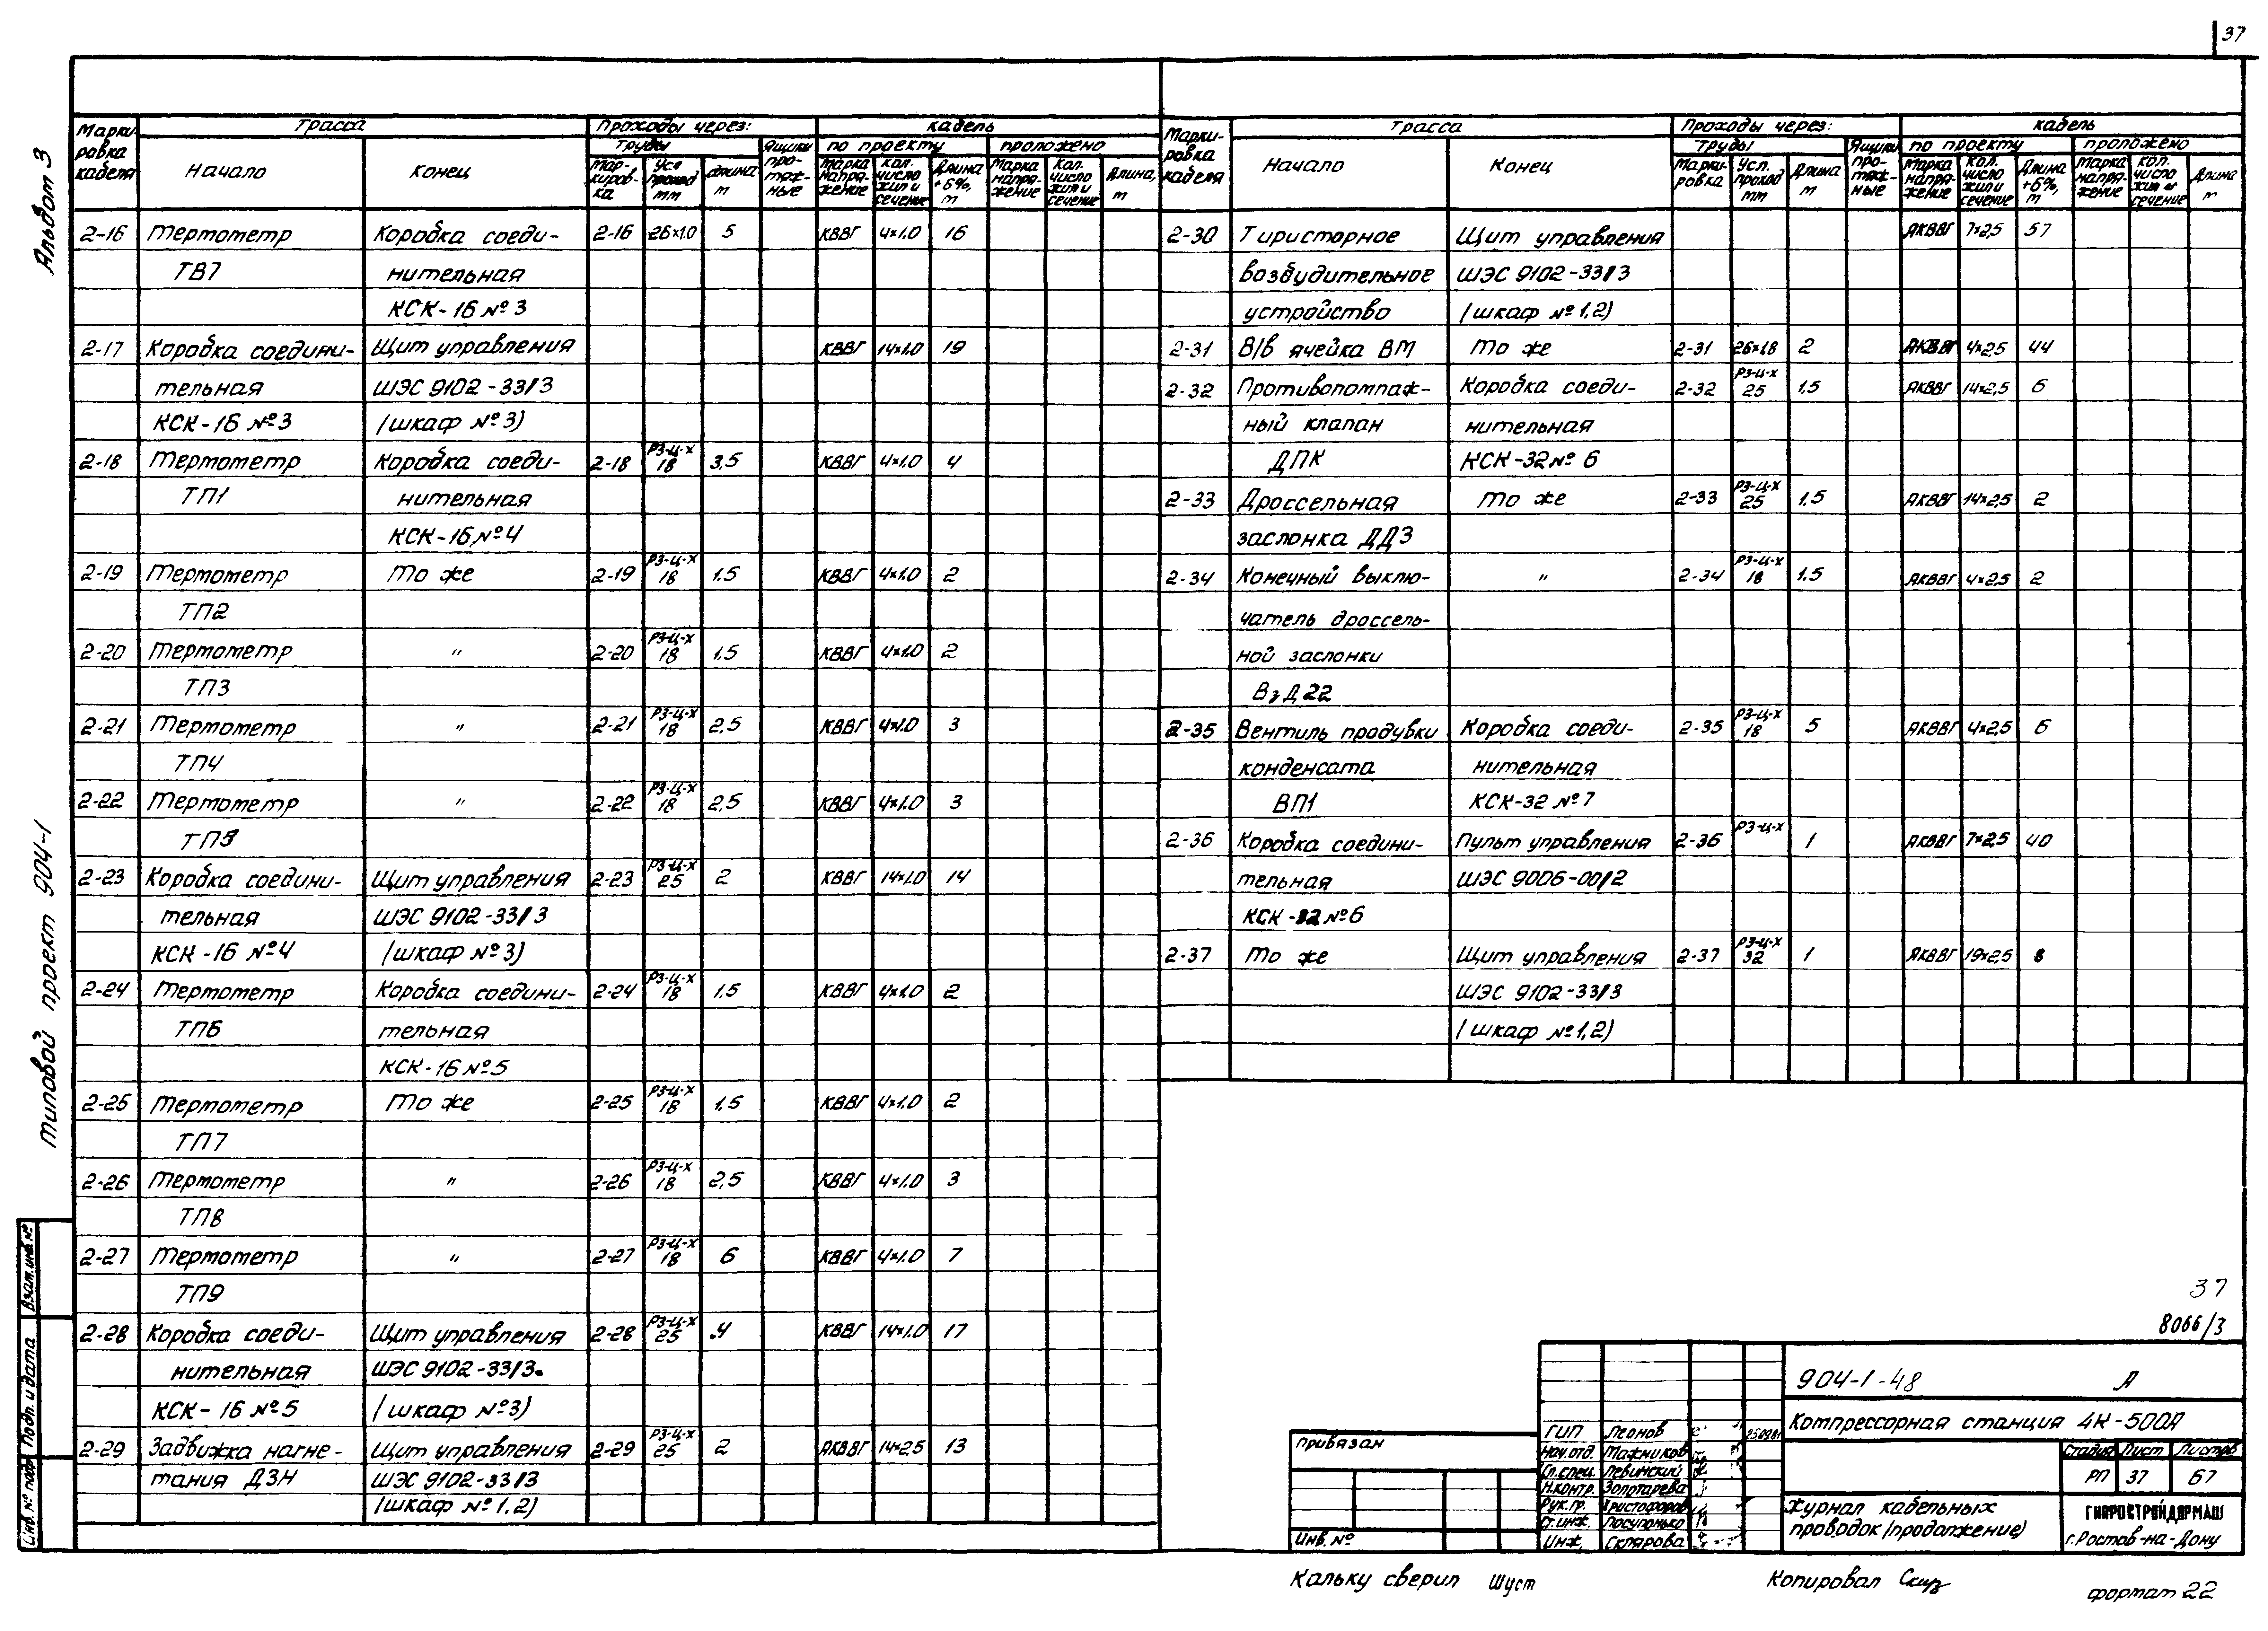 37
Альбом 3
Типовой проект 904-1
Марки-ровка кабеля | Трасса | Проходы через: | кабель
Начало | конец | Трубы | Ящики про-тяж-ные | по проекту | проложено
Мар-киров-ка | Усл. проход мм | длина м | Марка напря-жение | Кол. число жил и сечение | Длина +6%, м | Марка напря-жение | Кол. число жил и сечение | Длина, м
2-16 Термометр Коробка соеди- 2-16 26×1.0 5 КВВГ 4×1.0 16
ТВ7 нительная
КСК-16 №3
2-17 Коробка соедини- Щит управления КВВГ 14×1.0 19
тельная ШЭС 9102-33/3
КСК-16 №3 (шкаф №3)
2-18 Термометр Коробка соеди- 2-18 РЗ-Ц-Х 18 3,5 КВВГ 4×1.0 4
ТП1 нительная
КСК-16 №4
2-19 Термометр То же 2-19 РЗ-Ц-Х 18 1.5 КВВГ 4×1.0 2
ТП2
2-20 Термометр " 2-20 РЗ-Ц-Х 18 1.5 КВВГ 4×1.0 2
ТП3
2-21 Термометр " 2-21 РЗ-Ц-Х 18 2,5 КВВГ 4×1.0 3
ТП4
2-22 Термометр " 2-22 РЗ-Ц-Х 18 2,5 КВВГ 4×1.0 3
2-23 Коробка соедини- Щит управления 2-23 РЗ-Ц-Х 25 2 КВВГ 14×1.0 14
тельная ШЭС 9102-33/3
КСК-16 №4 (шкаф №3)
2-24 Термометр Коробка соедини- 2-24 РЗ-Ц-Х 18 1,5 КВВГ 4×1.0 2
ТП6 тельная
КСК-16 №5
2-25 Термометр То же 2-25 РЗ-Ц-Х 18 1,5 КВВГ 4×1.0 2
ТП7
2-26 Термометр " 2-26 РЗ-Ц-Х 18 2,5 КВВГ 4×1.0 3
ТП8
2-27 Термометр " 2-27 РЗ-Ц-Х 18 6 КВВГ 4×1.0 7
ТП9
2-28 Коробка соеди- Щит управления 2-28 РЗ-Ц-Х 25 4 КВВГ 14×1.0 17
нительная ШЭС 9102-33/3
КСК-16 №5 (шкаф №3)
2-29 Задвижка нагне- Щит управления 2-29 РЗ-Ц-Х 25 2 АКВВГ 14×2,5 13
тания ДЗН ШЭС 9102-33/3
(шкаф №1,2)
Марки-ровка кабеля | Трасса | Проходы через: | кабель
Начало | Конец | Трубы | Ящики про-тяж-ные | по проекту | проложено
Марки-ровка | Усл. проход мм | Длина м | Марка напря-жение | Кол. число жил и сечение | Длина +6%, м | Марка напря-жение | Кол. число жил и сечение | Длина м
2-30 Тиристорное Щит управления АКВВГ 7×2,5 57
возбудительное ШЭС 9102-33/3
устройство (шкаф №1,2)
2-31 В/в ячейка ВМ То же 2-31 26×1,8 2 АКВВГ 4×2,5 44
2-32 Противопомпаж- Коробка соеди- 2-32 РЗ-Ц-Х 25 1.5 АКВВГ 14×2,5 6
ный клапан нительная
ДПК КСК-32 №6
2-33 Дроссельная То же 2-33 РЗ-Ц-Х 25 1.5 АКВВГ 14×2,5 2
заслонка ДДЗ
2-34 Конечный выклю- " 2-34 РЗ-Ц-Х 18 1.5 АКВВГ 4×2,5 2
чатель дроссель-
ной заслонки
2-35 Вентиль продувки Коробка соеди- 2-35 РЗ-Ц-Х 18 5 АКВВГ 4×2,5 6
конденсата нительная
ВП1 КСК-32 №7
2-36 Коробка соедини- Пульт управления 2-36 РЗ-Ц-Х 1 АКВВГ 7×2,5 40
тельная ШЭС 9006-00/2
КСК-32 №6
2-37 То же Щит управления 2-37 РЗ-Ц-Х 32 1 АКВВГ 19×2,5 8
ШЭС 9102-33/3
(шкаф №1,2)
37
8066/3
904-1-48 А
Компрессорная станция 4К-500А
Стадия Лист Листов
РП 37 67
Журнал кабельных
проводок (продолжение)
ГИПРОСТРОЙДОРМАШ
г.Ростов-на-Дону
ГИП Леонов 25.09.81
Нач.отд. Мажников
Гл.спец. Левинский
Н.контр. Золотарева
Рук.гр. Христофоров
Ст.инж.
Инж. Склярова
Привязан
Инв.№
Взам.инв.№
Подп. и дата
Инв.№ подл.
Кальку сверил Шуст
Копировал
формат 22